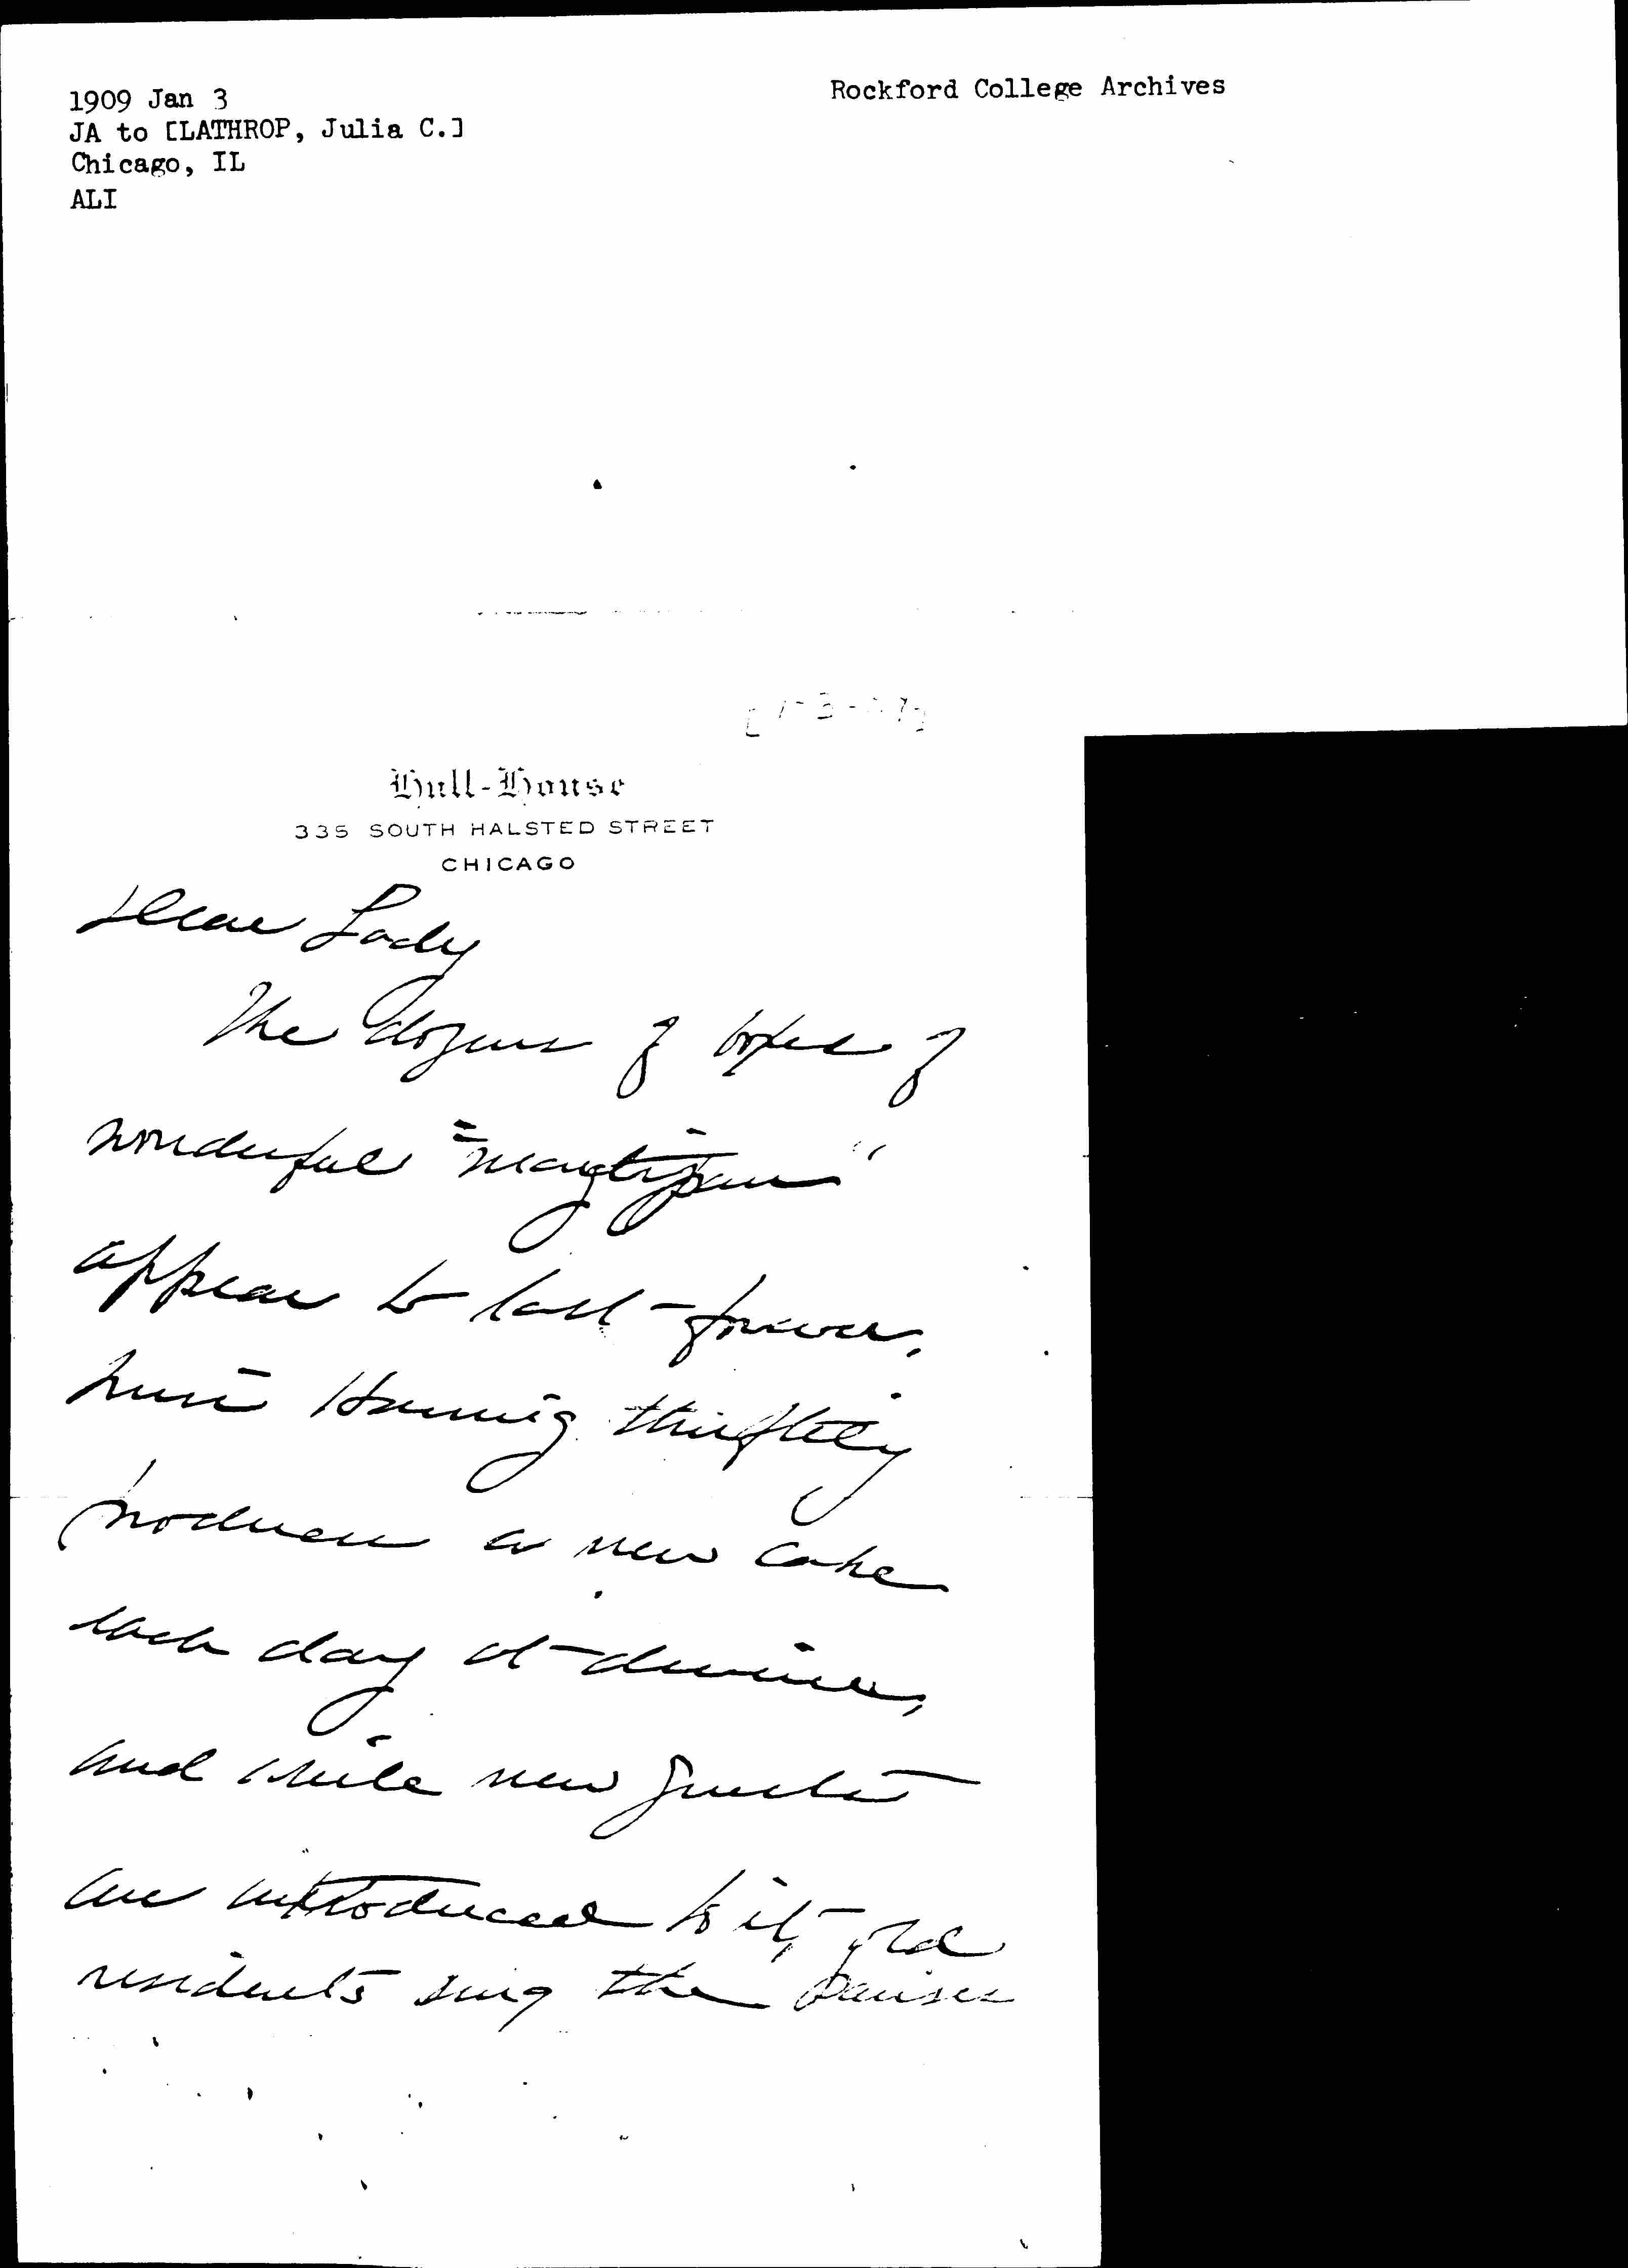 1909 Jan 3
JA to [LATHROP, Julia C.]
Chicago, IL
ALI
Rockford College Archives
Hull-House
335 SOUTH HALSTED STREET
CHICAGO
Dear Lady
The dozens of boxes of
wonderful
appear to last forever,
thriftily
produces a new cake
each day at dinner,
and while new guests
are introduced to it, old
residents sing the praises